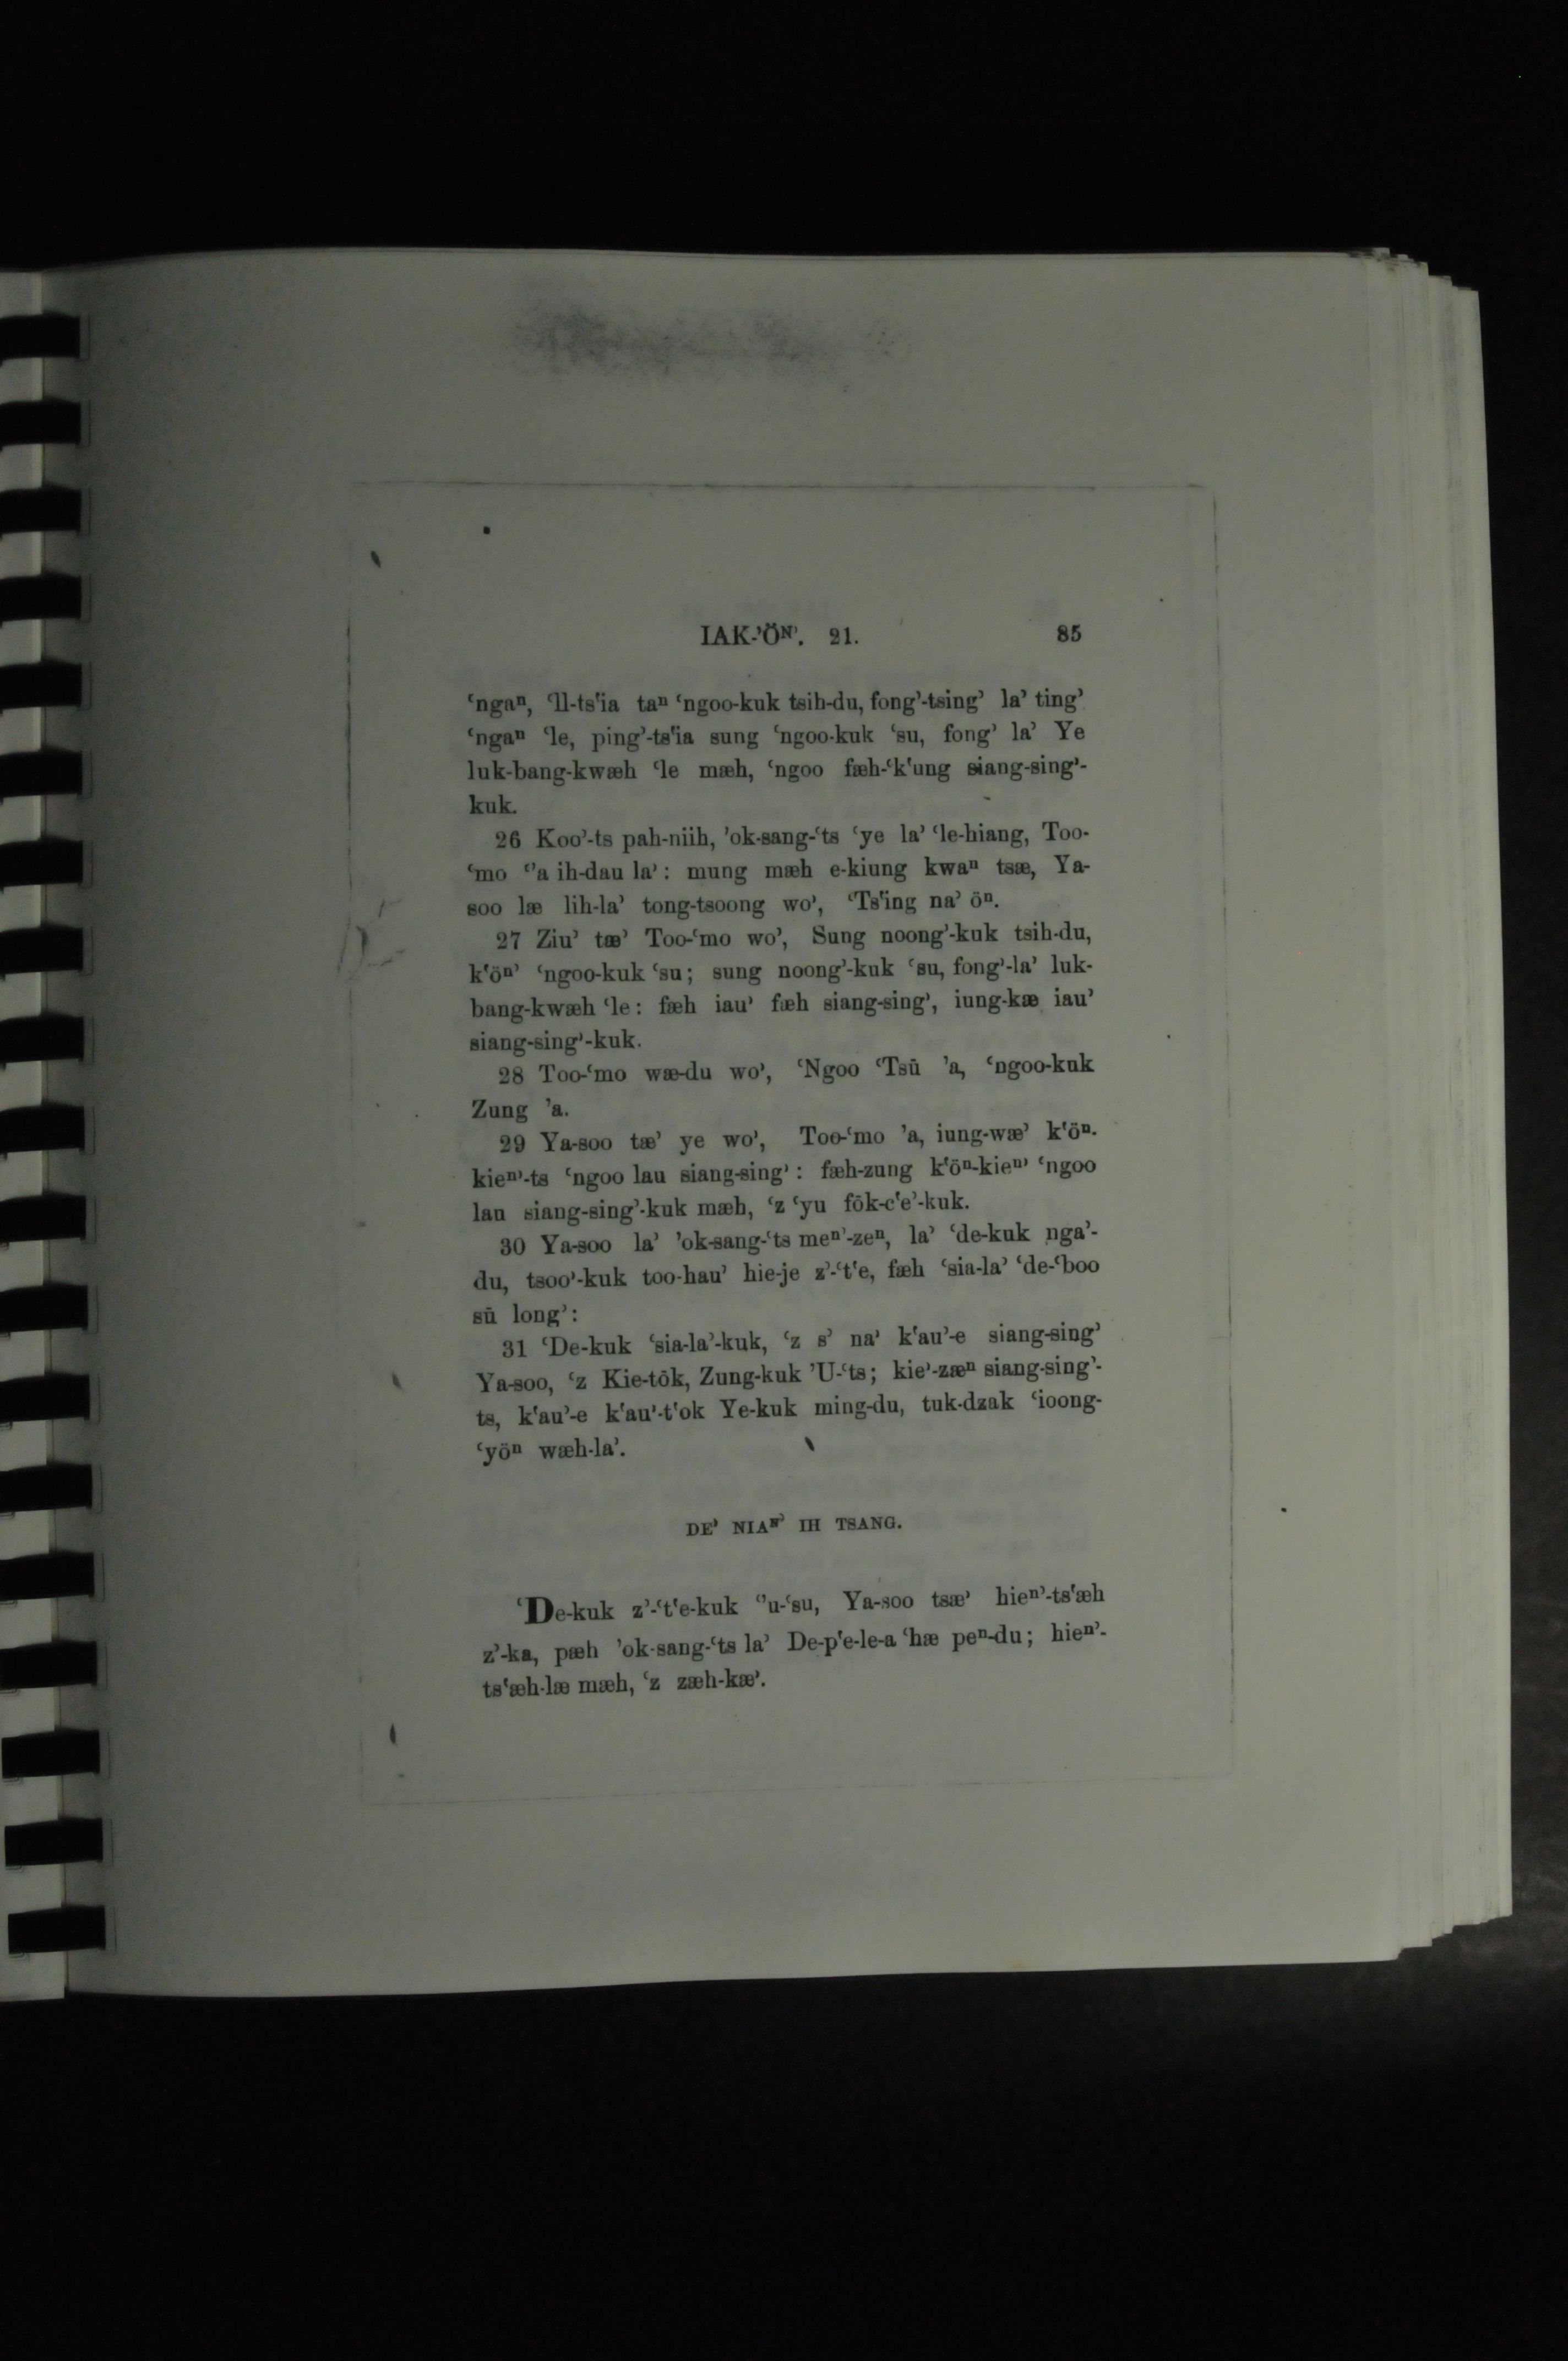 IAK-’ÖN’. 21. 85
‘ngaⁿ, ‘ll-ts‘ia taⁿ ‘ngoo-kuk tsih-du, fong’-tsing’ la’ ting’
‘ngaⁿ ‘le, ping’-ts‘ia sung ‘ngoo-kuk ‘su, fong’ la’ Ye
luk-bang-kwæh ‘le mæh, ‘ngoo fæh-‘k‘ung siang-sing’-
kuk.
26 Koo’-ts pah-niih, ’ok-sang-‘ts ‘ye la’ ‘le-hiang, Too-
‘mo ‘’a ih-dau la’: mung mæh e-kiung kwaⁿ tsæ, Ya-
soo læ lih-la’ tong-tsoong wo’, ‘Ts‘ing na’ öⁿ.
27 Ziu’ tæ’ Too-‘mo wo’, Sung noong’-kuk tsih-du,
k‘öⁿ’ ‘ngoo-kuk ‘su; sung noong’-kuk ‘su, fong’-la’ luk-
bang-kwæh ‘le: fæh iau’ fæh siang-sing’, iung-kæ iau’
siang-sing’-kuk.
28 Too-‘mo wæ-du wo’, ‘Ngoo ‘Tsū ’a, ‘ngoo-kuk
Zung ’a.
29 Ya-soo tæ’ ye wo’, Too-‘mo ’a, iung-wæ’ k‘öⁿ-
kieⁿ’-ts ‘ngoo lau siang-sing’: fæh-zung k‘öⁿ-kieⁿ’ ‘ngoo
lau siang-sing’-kuk mæh, ‘z ‘yu fōk-c‘e’-kuk.
30 Ya-soo la’ ’ok-sang-‘ts meⁿ’-zeⁿ, la’ ‘de-kuk nga’-
du, tsoo’-kuk too-hau’ hie-je z’-‘t‘e, fæh ‘sia-la’ ‘de-‘boo
sū long’:
31 ‘De-kuk ‘sia-la’-kuk, ‘z s’ na’ k‘au’-e siang-sing’
Ya-soo, ‘z Kie-tōk, Zung-kuk ’U-‘ts; kie’-zæⁿ siang-sing’-
ts, k‘au’-e k‘au’-t‘ok Ye-kuk ming-du, tuk-dzak ‘ioong-
‘yöⁿ wæh-la’.
DE’ NIAN’ IH TSANG.
‘De-kuk z’-‘t‘e-kuk ‘’u-‘su, Ya-soo tsæ’ hieⁿ’-ts‘æh
z’-ka, pæh ’ok-sang-‘ts la’ De-p‘e-le-a ‘hæ peⁿ-du; hieⁿ’-
ts‘æh-læ mæh, ‘z zæh-kæ’.